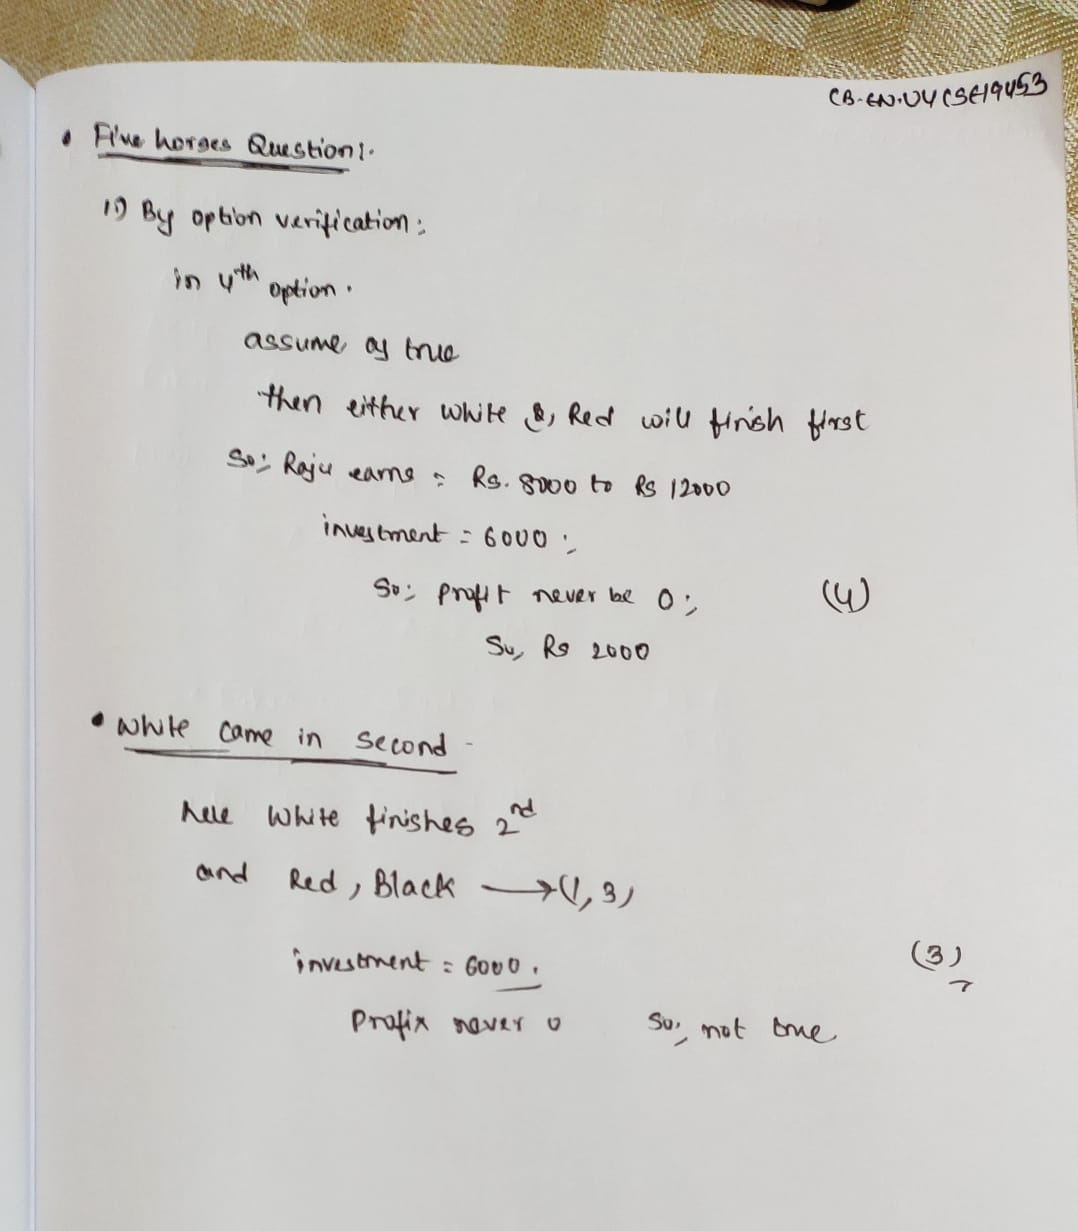 CB.EN.U4CSE19453
• Five horses Question:-
1) By option verification:
in 4th option.
assume as true
then either white &, Red will finish first
So; Raju earns = Rs. 8000 to Rs 12000
investment = 6000 ;
So; profit never be 0 ; (4)
So, Rs 2000
• White came in second -
here white finishes 2nd
and Red, Black → (1, 3)
investment = 6000. (3)
Profix never 0 So, not true